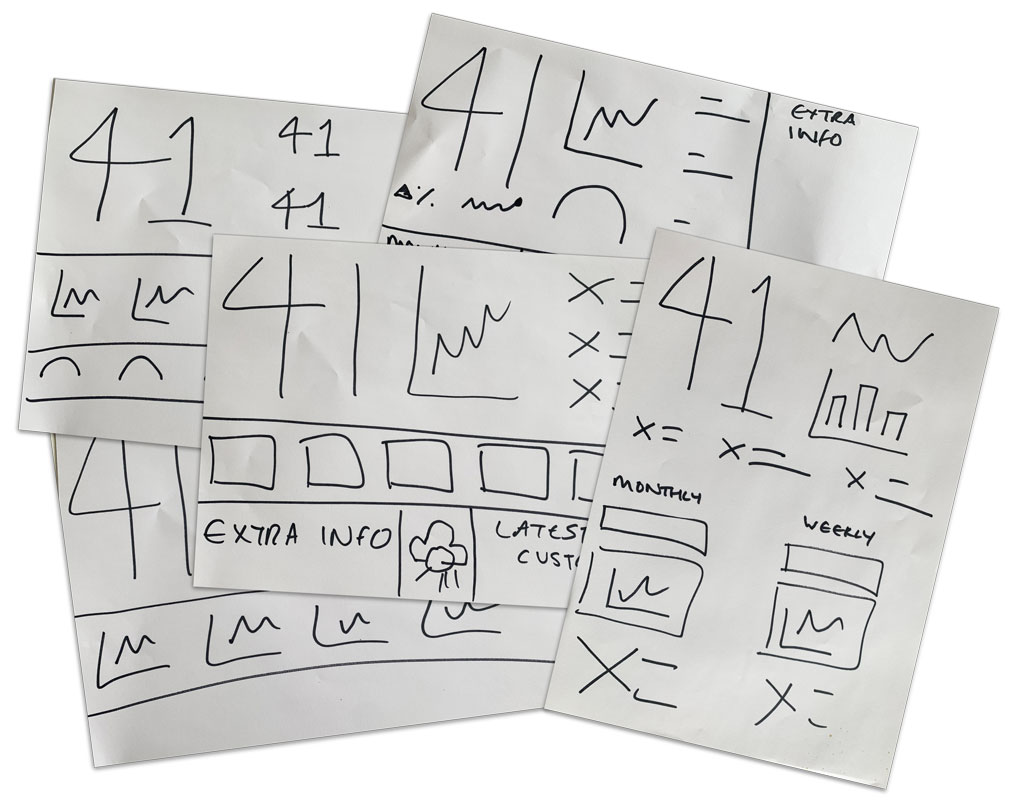 41
41
41
41
EXTRA
INFO
%
41
X =
X =
X =
EXTRA INFO
LATEST
CUSTO
41
X =
X =
X =
MONTHLY
WEEKLY
X =
X =
41